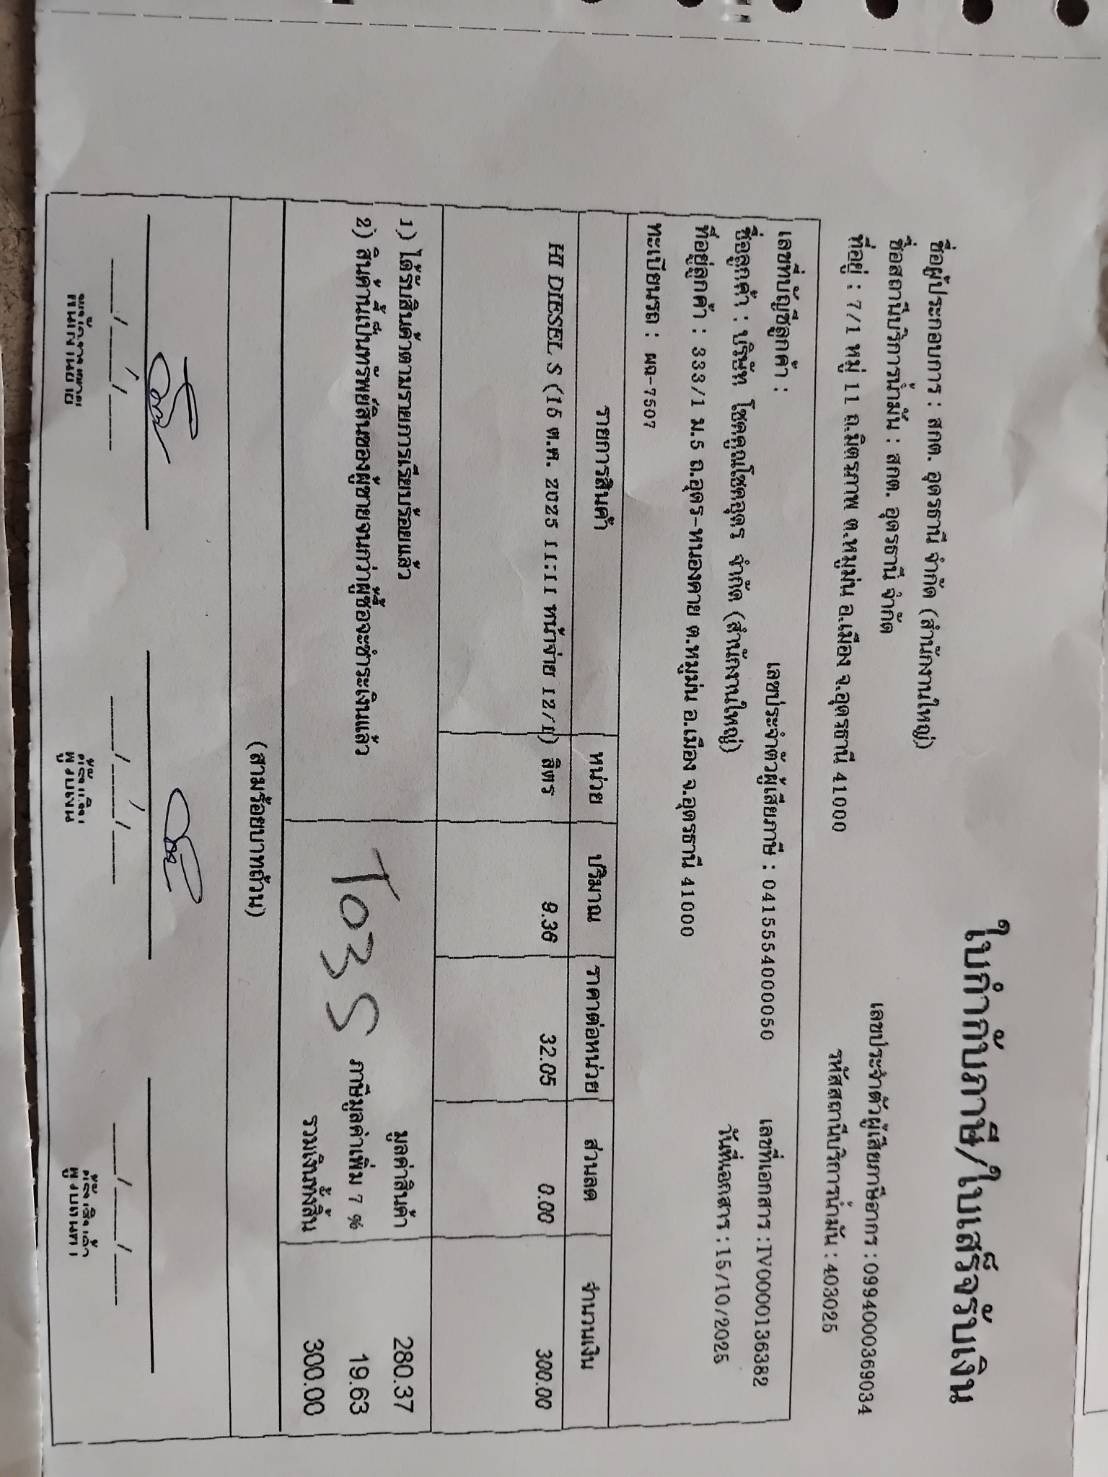 ใบกำกับภาษี/ใบเสร็จรับเงิน
ชื่อผู้ประกอบการ : สกต. อุดรธานี จำกัด (สำนักงานใหญ่)
เลขประจำตัวผู้เสียภาษีอากร : 0994000369034
ชื่อสถานีบริการน้ำมัน : สกต. อุดรธานี จำกัด
รหัสสถานีบริการน้ำมัน : 403025
ที่อยู่ : 7/1 หมู่ 11 ถ.มิตรภาพ ต.หมูม่น อ.เมือง จ.อุดรธานี 41000
เลขที่บัญชีลูกค้า :
เลขประจำตัวผู้เสียภาษี : 0415554000050
เลขที่เอกสาร :IV0000136382
ชื่อลูกค้า : บริษัท โชคคูณโชคอุดร จำกัด (สำนักงานใหญ่)
วันที่เอกสาร : 15/10/2025
ที่อยู่ลูกค้า : 333/1 ม.5 ถ.อุดร-หนองคาย ต.หมูม่น อ.เมือง จ.อุดรธานี 41000
ทะเบียนรถ : ผฉ-7507
รายการสินค้า หน่วย ปริมาณ ราคาต่อหน่วย ส่วนลด จำนวนเงิน
HI DIESEL S (15 ต.ค. 2025 11:11 หน้าจ่าย 12/1) ลิตร 9.36 32.05 0.00 300.00
1) ได้รับสินค้าตามรายการเรียบร้อยแล้ว
มูลค่าสินค้า 280.37
2) สินค้านี้เป็นทรัพย์สินของผู้ขายจนกว่าผู้ซื้อจะชำระเงินแล้ว
TO3S
ภาษีมูลค่าเพิ่ม 7 % 19.63
รวมเงินทั้งสิ้น 300.00
(สามร้อยบาทถ้วน)
___/___/___ ___/___/___ ___/___/___
พนักงานขาย ผู้รับเงิน ผู้รับสินค้า